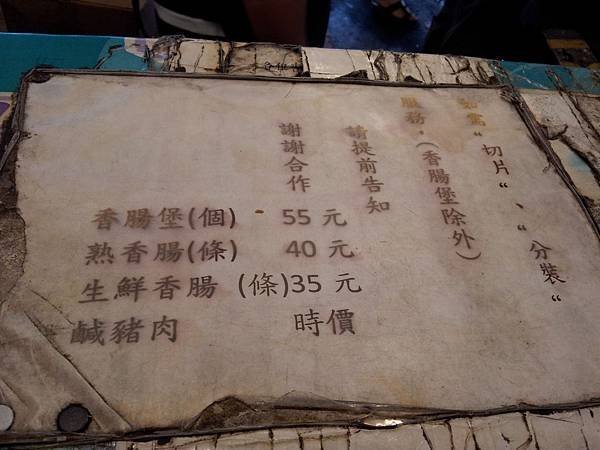 如需“切片“、“分裝“
服務，(香腸堡除外)
請提前告知
謝謝合作
香腸堡(個) 55 元
熟香腸(條) 40 元
生鮮香腸 (條)35 元
鹹豬肉 時價